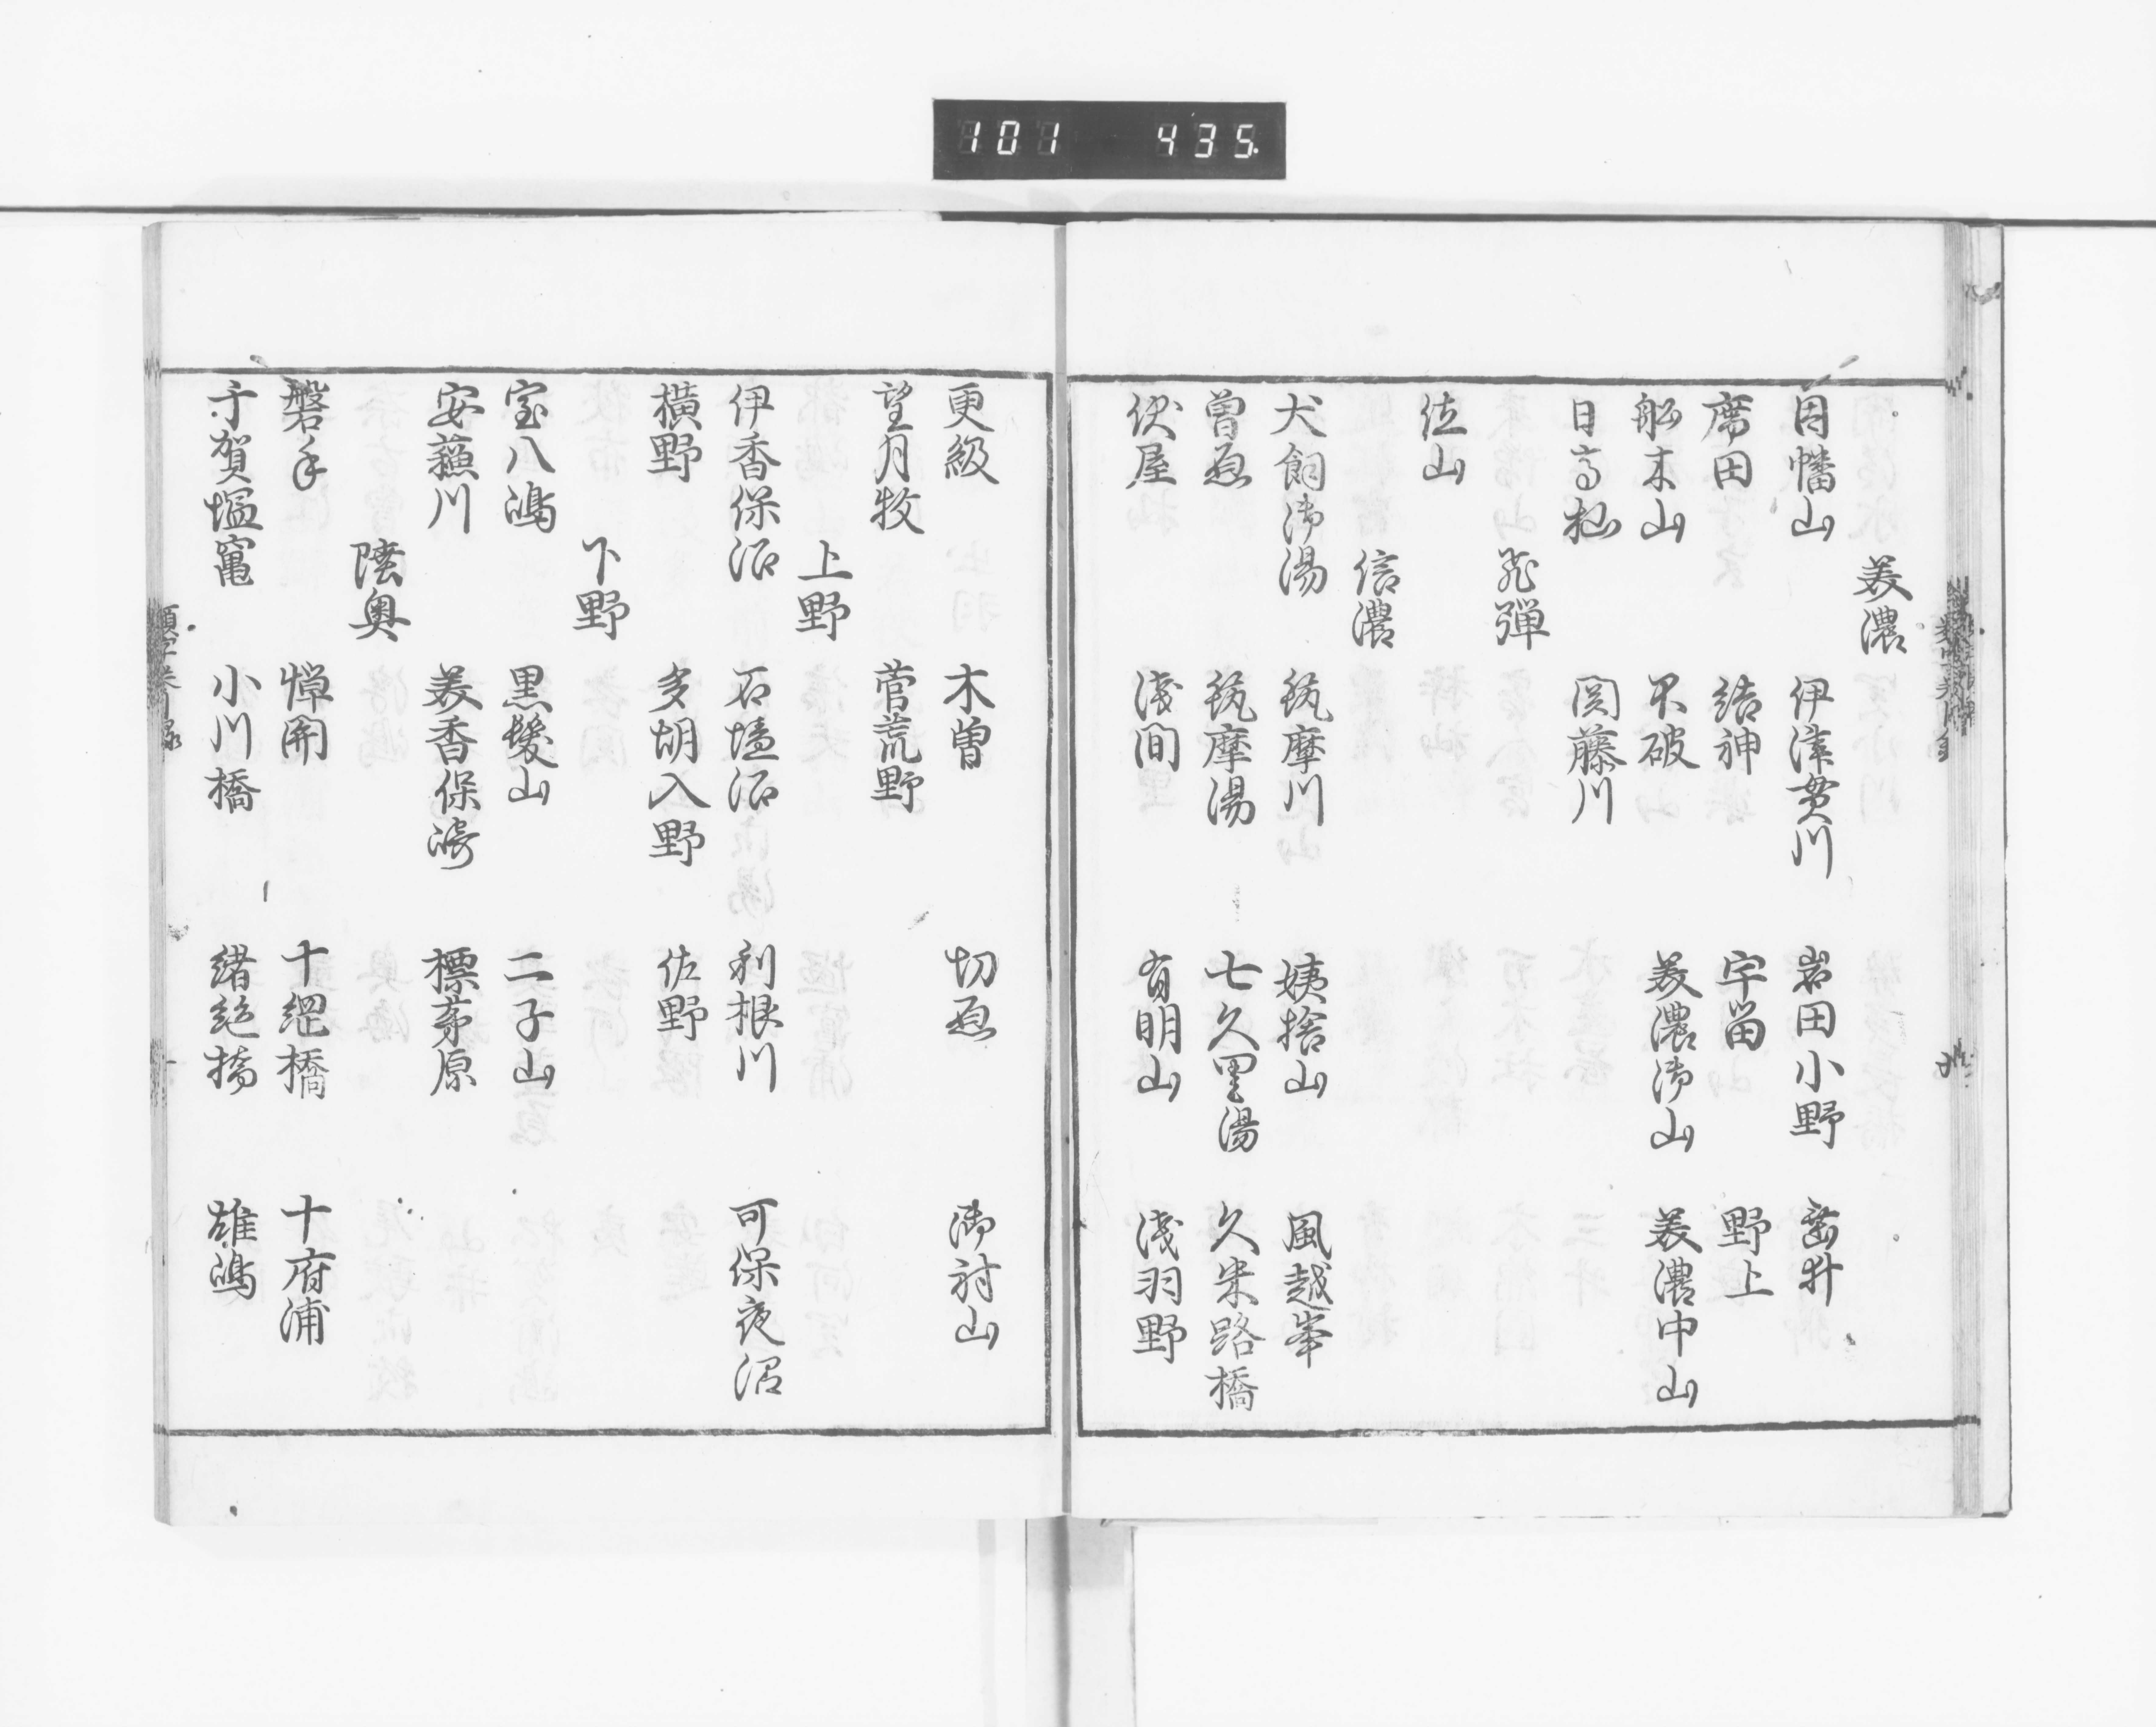 101 435
美濃
因幡山 伊津貫川 岩田小野
席田 結神 宇留 野上
船木山 不破 美濃御山 美濃中山
日高杣 関藤川
飛彈
位山
信濃
犬飼御湯 筑摩川 姨捨山 風越峯
曽原 筑摩湯 七久里湯 久米路橋
伏屋 浅間 有明山 浅羽野
更級 木曽 切原 御射山
望月牧 菅荒野
上野
伊香保沼 石墻沼 利根川 可保夜沼
横野 多胡入野 佐野
下野
室八嶋 黒髪山 二子山
安蘓川 美香保崎 標茅原
陸奥
磐手 憚関 十綱橋 十府浦
千賀塩竃 小川橋 緒絶橋 雄嶋